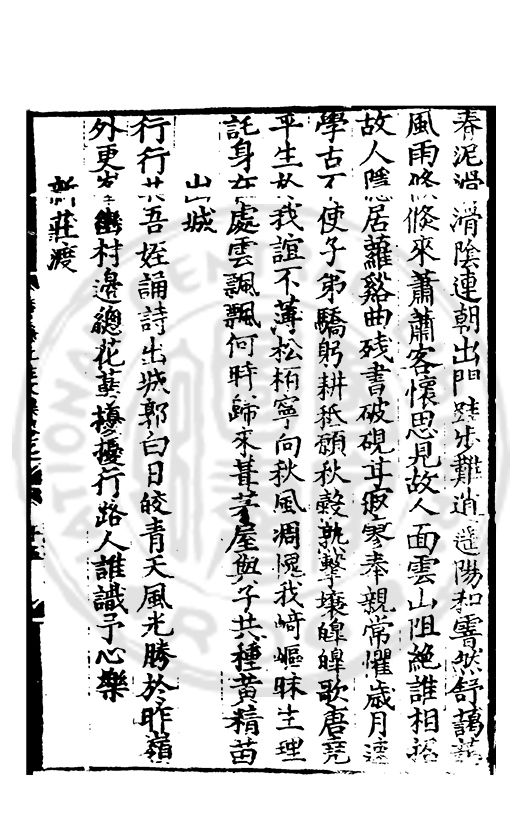 春泥滑滑陰連朝出門跬步難逍遥陽和霽然舒藹
風雨倐倐來蕭蕭客懷思見故人面雲山阻絕誰相
故人隱居蘿谿曲殘書破硯耳寂寥奉親常懼歲月
學古不使子弟驕躬耕秪願秋穀孰擊壤皥皥歌唐堯
平生於我誼不薄松栢寧向秋風凋愧我﨑嶇昧生理
託身在處雲飄飄何時歸來葺茅屋與子共種黃精苗
山城
行行共吾姪誦詩出城郭白日皎青天風光勝於昨嶺
外更村邊總花萼擾擾行路人誰識予心樂
新莊渡